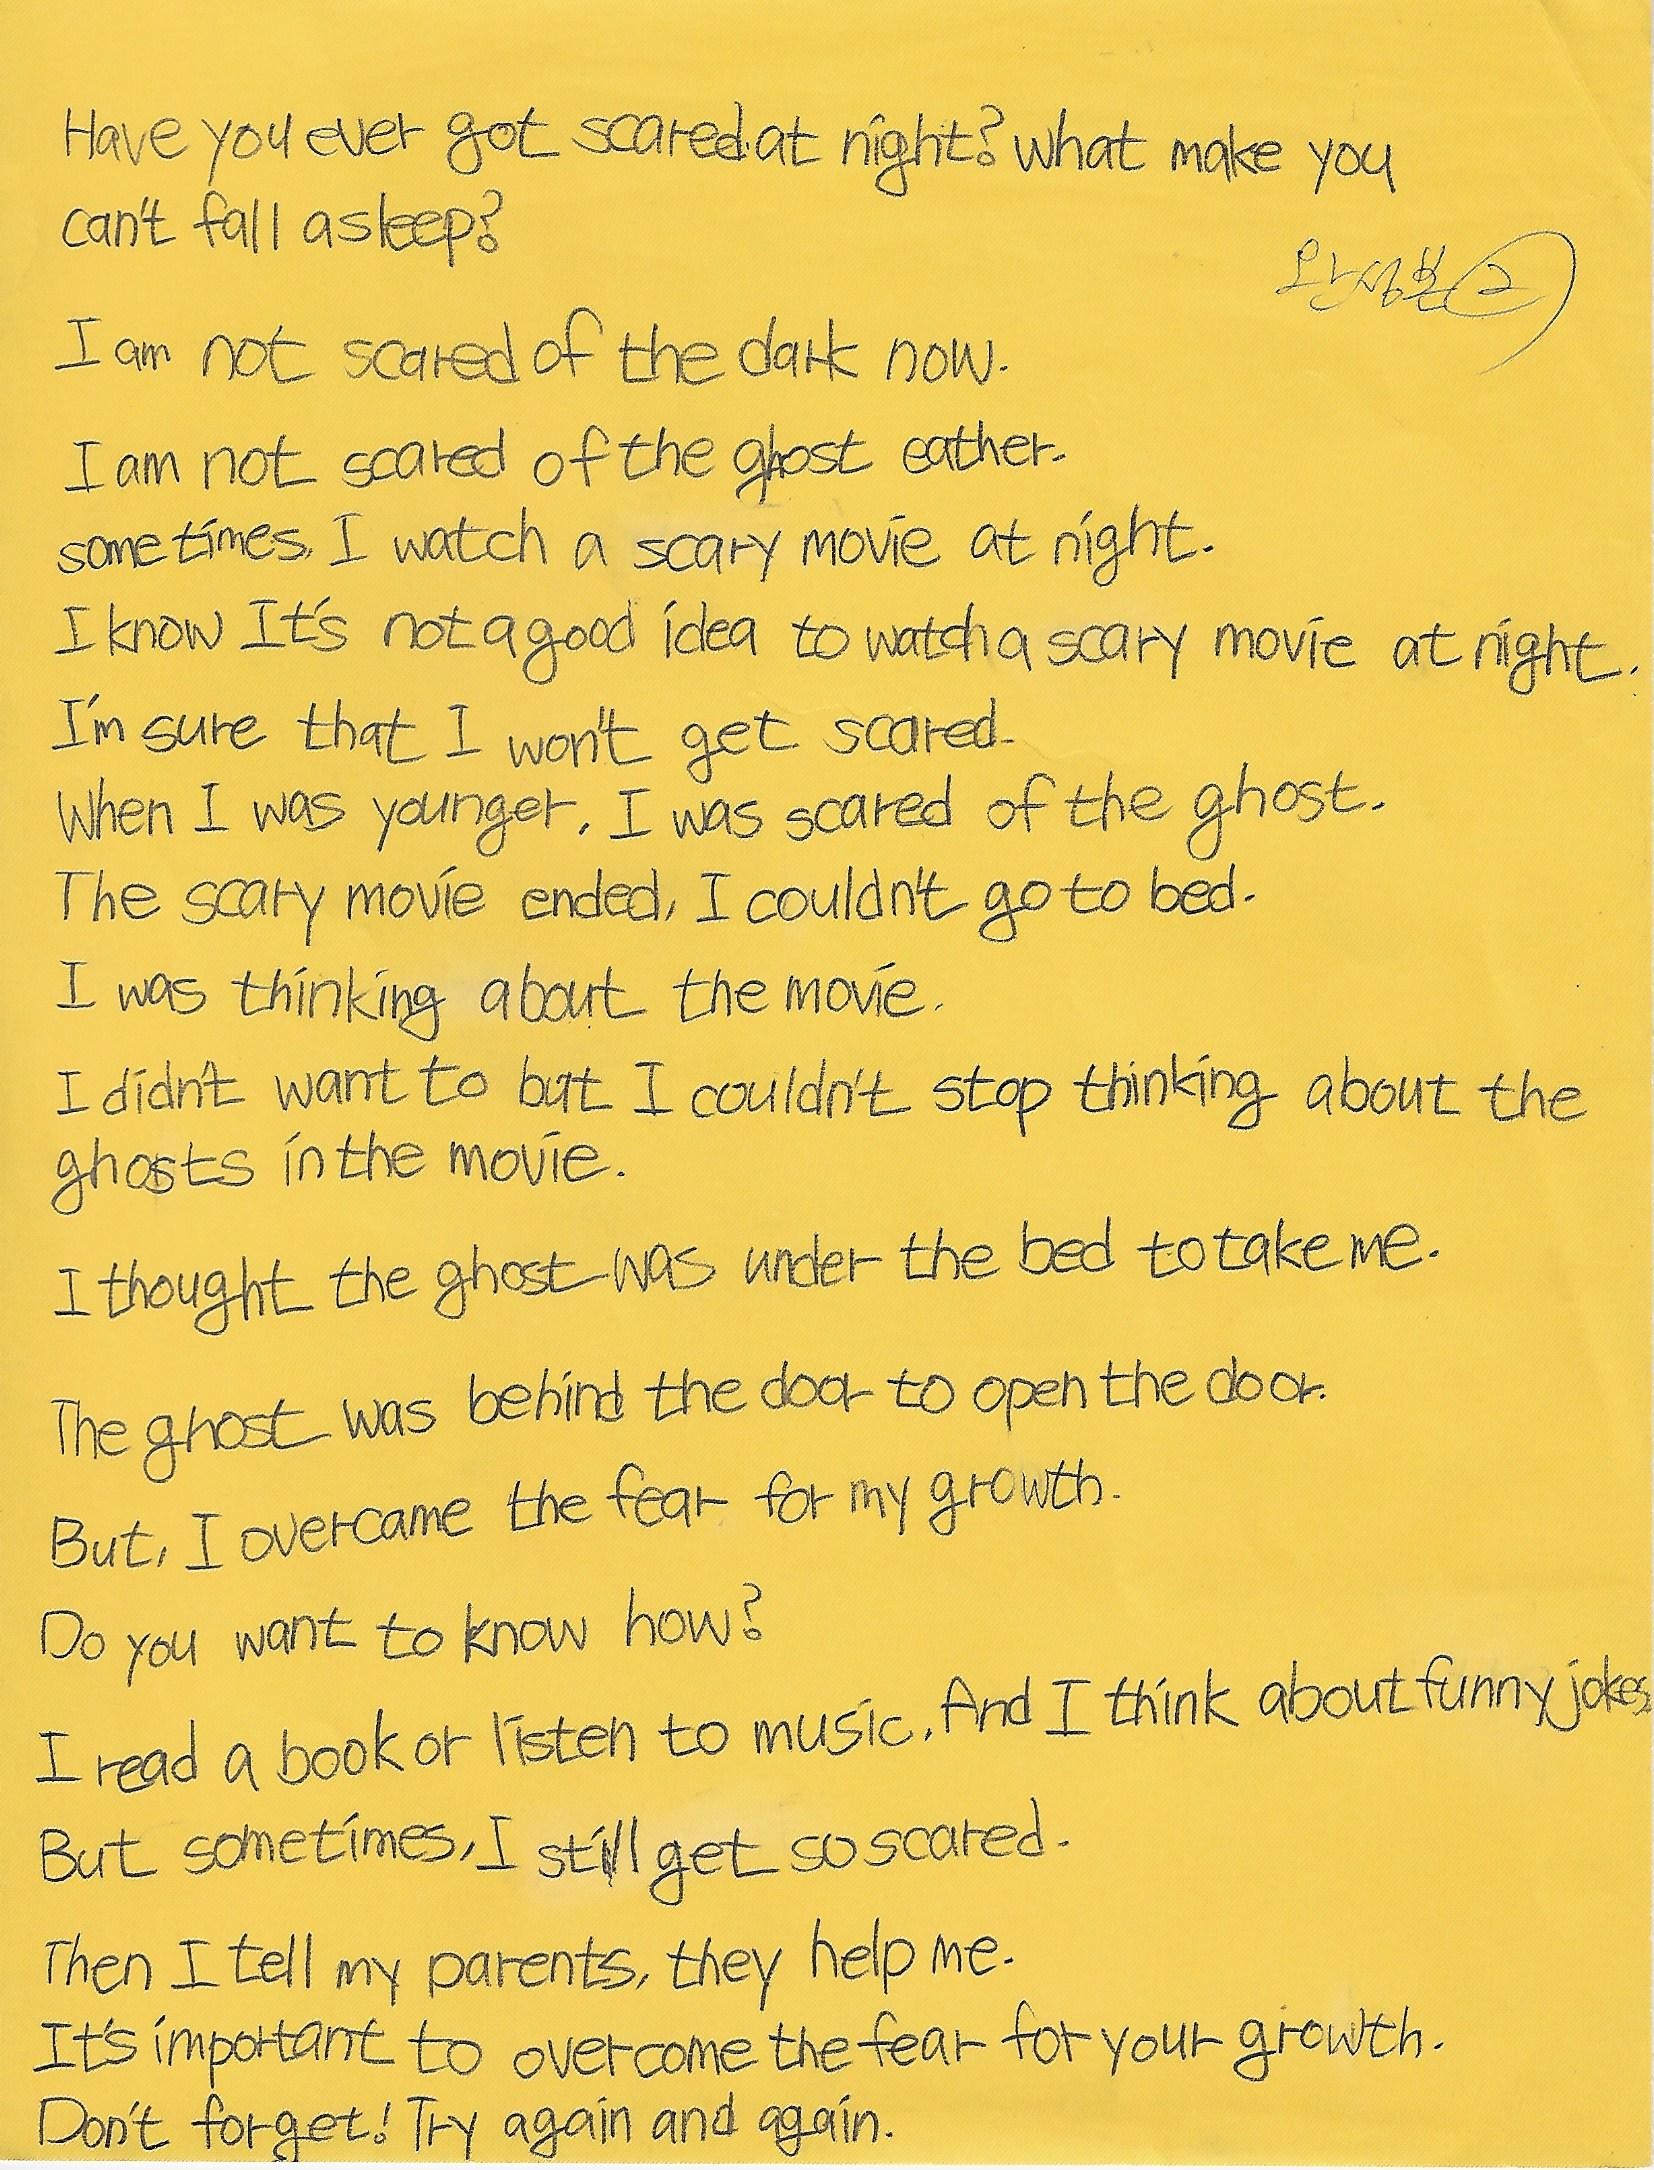 Have you ever got scared at night? What make you
can't fall asleep?
완성본 2
I am not scared of the dark now.
I am not scared of the ghost eather.
sometimes, I watch a scary movie at night.
I know It's not a good idea to watch a scary movie at night.
I'm sure that I won't get scared.
When I was younger, I was scared of the ghost.
The scary movie ended, I couldn't go to bed.
I was thinking about the movie.
I didn't want to but I couldn't stop thinking about the
ghosts in the movie.
I thought the ghost was under the bed to take me.
The ghost was behind the door to open the door.
But, I overcame the fear for my growth.
Do you want to know how?
I read a book or listen to music. And I think about funny jokes.
But sometimes, I still get so scared.
Then I tell my parents, they help me.
It's important to overcome the fear for your growth.
Don't forget! Try again and again.